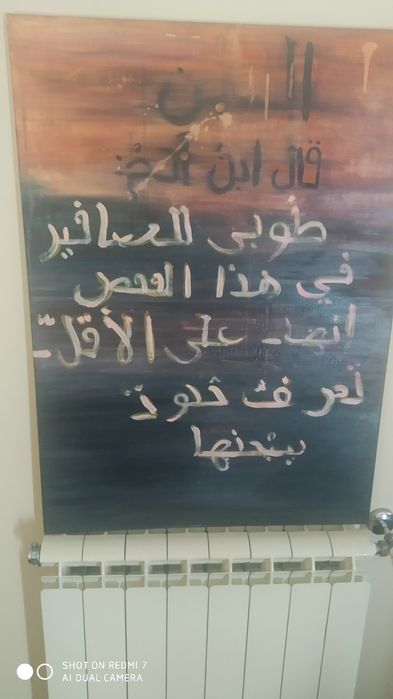 قال ابن
طوبى للعصافير
في هذا القفص
انها - على الأقلّ -
تعرف حدود
سجنها
SHOT ON REDMI 7
AI DUAL CAMERA